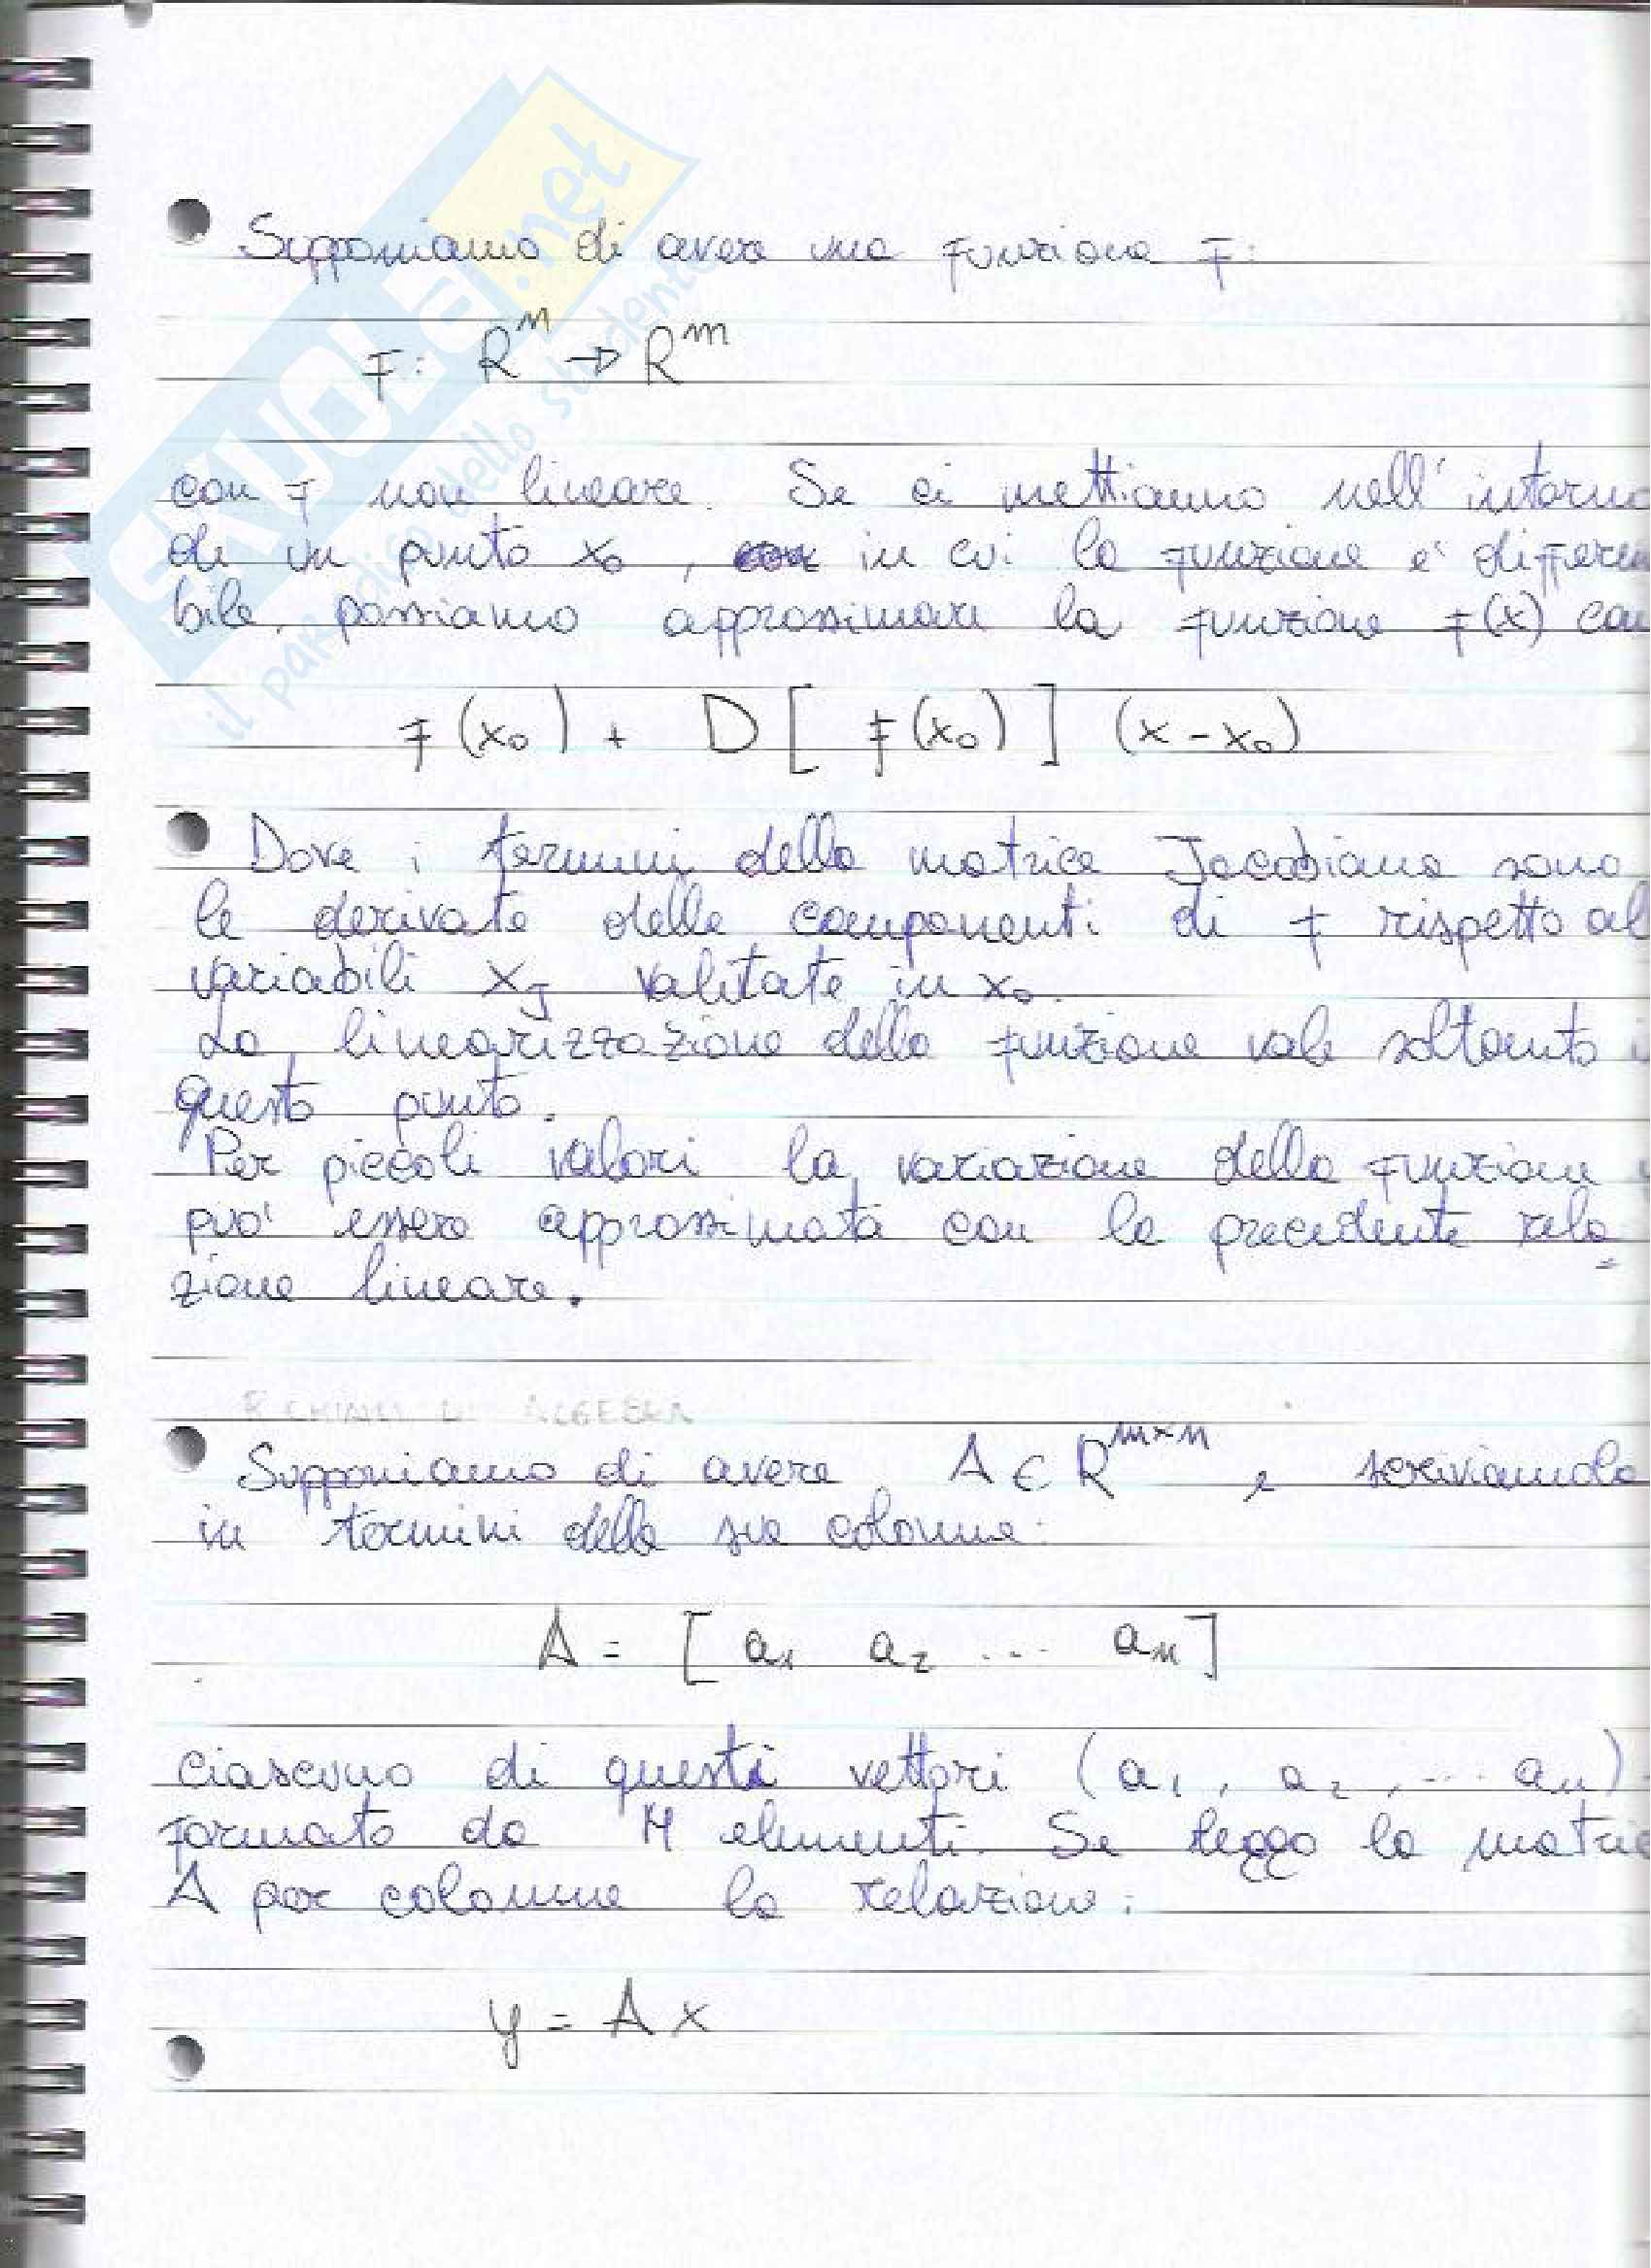 SKUOLA.net
il paradiso dello studente
Supponiamo di avere una funzione f:
f: R^n → R^m
con f non lineare. Se ci mettiamo nell'intorno
di un punto x₀, in cui la funzione e' differen
bile, possiamo approssimare la funzione f(x) con
f(x₀) + D[f(x₀)] (x-x₀)
Dove i termini della matrice Jacobiana sono
le derivate delle componenti di f rispetto al
variabili x_J valutate in x₀.
La linearizzazione della funzione vale soltanto i
questo punto.
Per piccoli valori la variazione della funzione
puo' essere approssimata con la precedente rela=
zione lineare.
RICHIAMI DI ALGEBRA
Supponiamo di avere A ∈ R^{m×n}, scriviamola
in termini delle sue colonne:
A = [a₁ a₂ ... aₙ]
ciascuno di questi vettori (a₁, a₂, ... aₙ)
formato da M elementi. Se leggo la matric
A per colonne la relazione:
y = A x